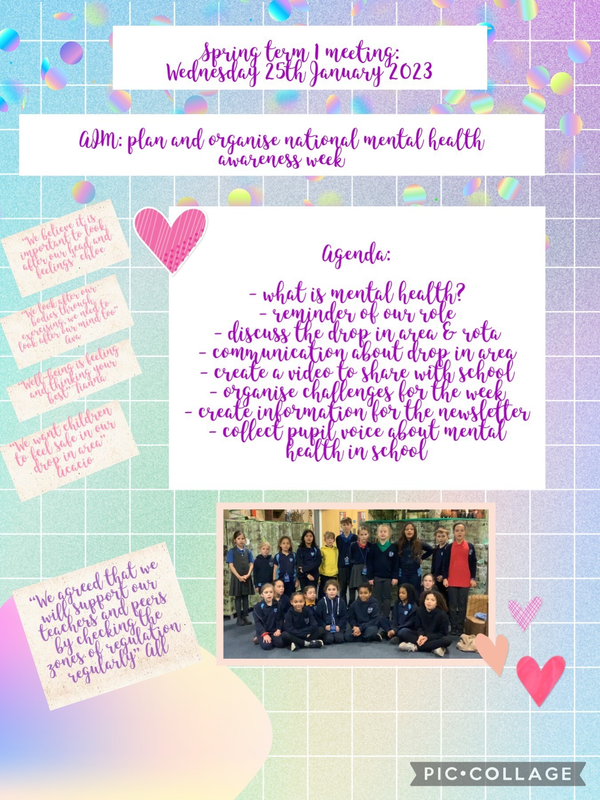 Spring term 1 meeting:
Wednesday 25th January 2023
AIM: plan and organise national mental health
awareness week
Agenda:
- what is mental health?
- reminder of our role
- discuss the drop in area & rota
- communication about drop in area
- create a video to share with school
- organise challenges for the week
- create information for the newsletter
- collect pupil voice about mental
health in school
"We believe it is
important to look
after our head and
feelings" chloe
"We look after our
bodies through
exercising, we need to
look after our mind too"
Ava
"Well-being is feeling
and thinking your
best" Tianna
"We want children
to feel safe in our
drop in area"
Acacio
"We agreed that we
will support our
teachers and peers
by checking the
zones of regulation
regularly" All
PIC•COLLAGE